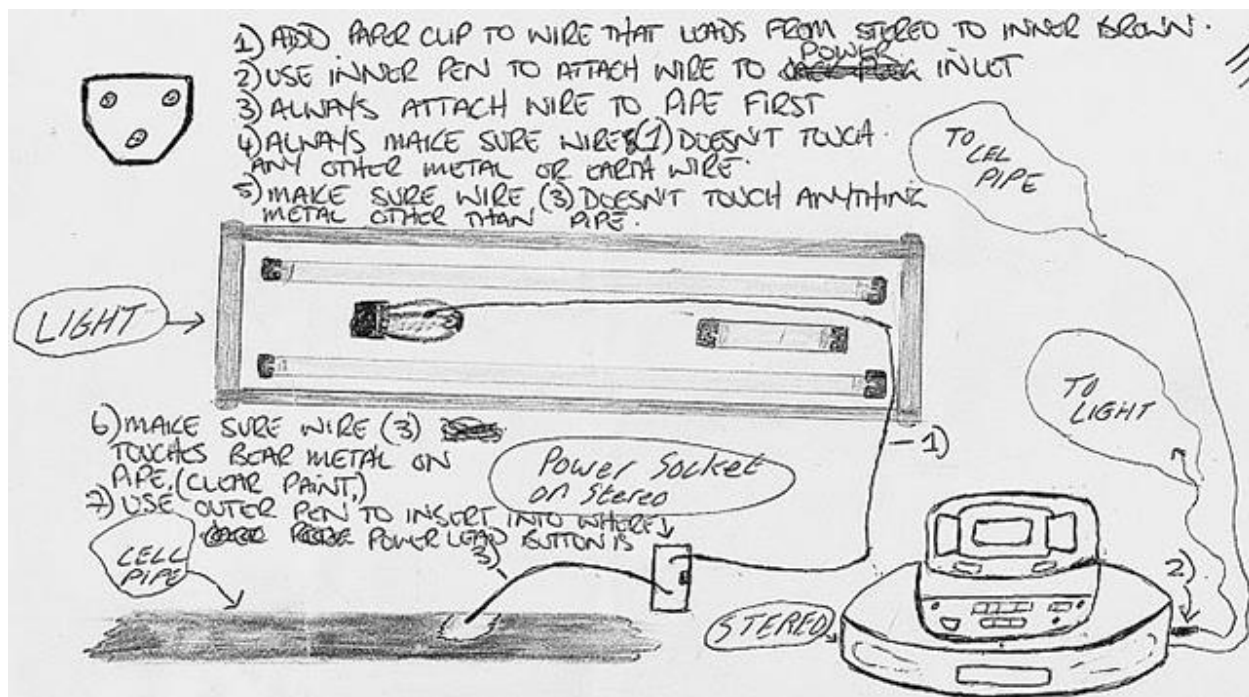 1) ADD PAPER CLIP TO WIRE THAT LEADS FROM STEREO TO INNER BROWN.
2) USE INNER PEN TO ATTACH WIRE TO POWER INLET
3) ALWAYS ATTACH WIRE TO PIPE FIRST
4) ALWAYS MAKE SURE WIRE (1) DOESN'T TOUCH
ANY OTHER METAL OR EARTH WIRE.
5) MAKE SURE WIRE (3) DOESN'T TOUCH ANYTHING
METAL OTHER THAN PIPE.
TO
CEL
PIPE
LIGHT
TO
LIGHT
1)
6) MAKE SURE WIRE (3)
TOUCHES BEAR METAL ON
PIPE, (CLEAR PAINT,)
7) USE OUTER PEN TO INSERT INTO WHERE
POWER LEAD BUTTON IS
Power Socket
on Stereo
3)
CELL
PIPE
2)
STEREO